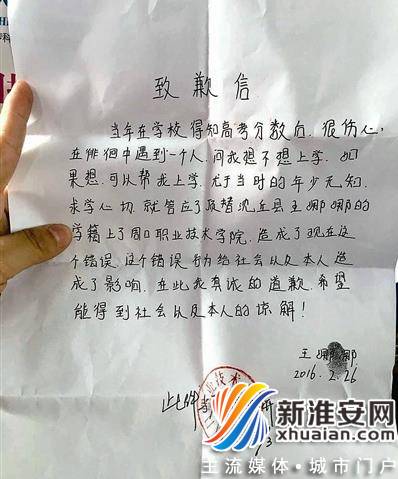 致歉信
当年在学校得知高考分数后，很伤心，
在徘徊中遇到一个人，问我想不想上学，如
果想，可以帮我上学，尤于当时的年少无知，
求学心切，就答应了顶替沈丘县王娜娜的
学籍上了周口职业技术学院，造成了现在这
个错误，这个错误行为给社会以及本人造
成了影响，在此我真诚的道歉，希望
能得到社会以及本人的谅解！
王娜娜
2016.2.26
此件
新淮安网
xhuaian.com
主流媒体·城市门户